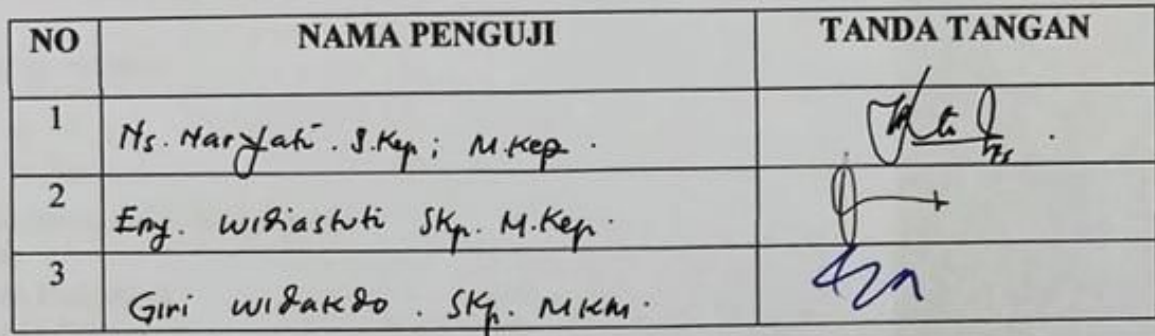 NO NAMA PENGUJI TANDA TANGAN
1 Ns. Naryati. S.Kep; M.Kep.
2 Eny. Widiastuti SKp. M.Kep.
3 Giri Widakdo. SKp. MKM.